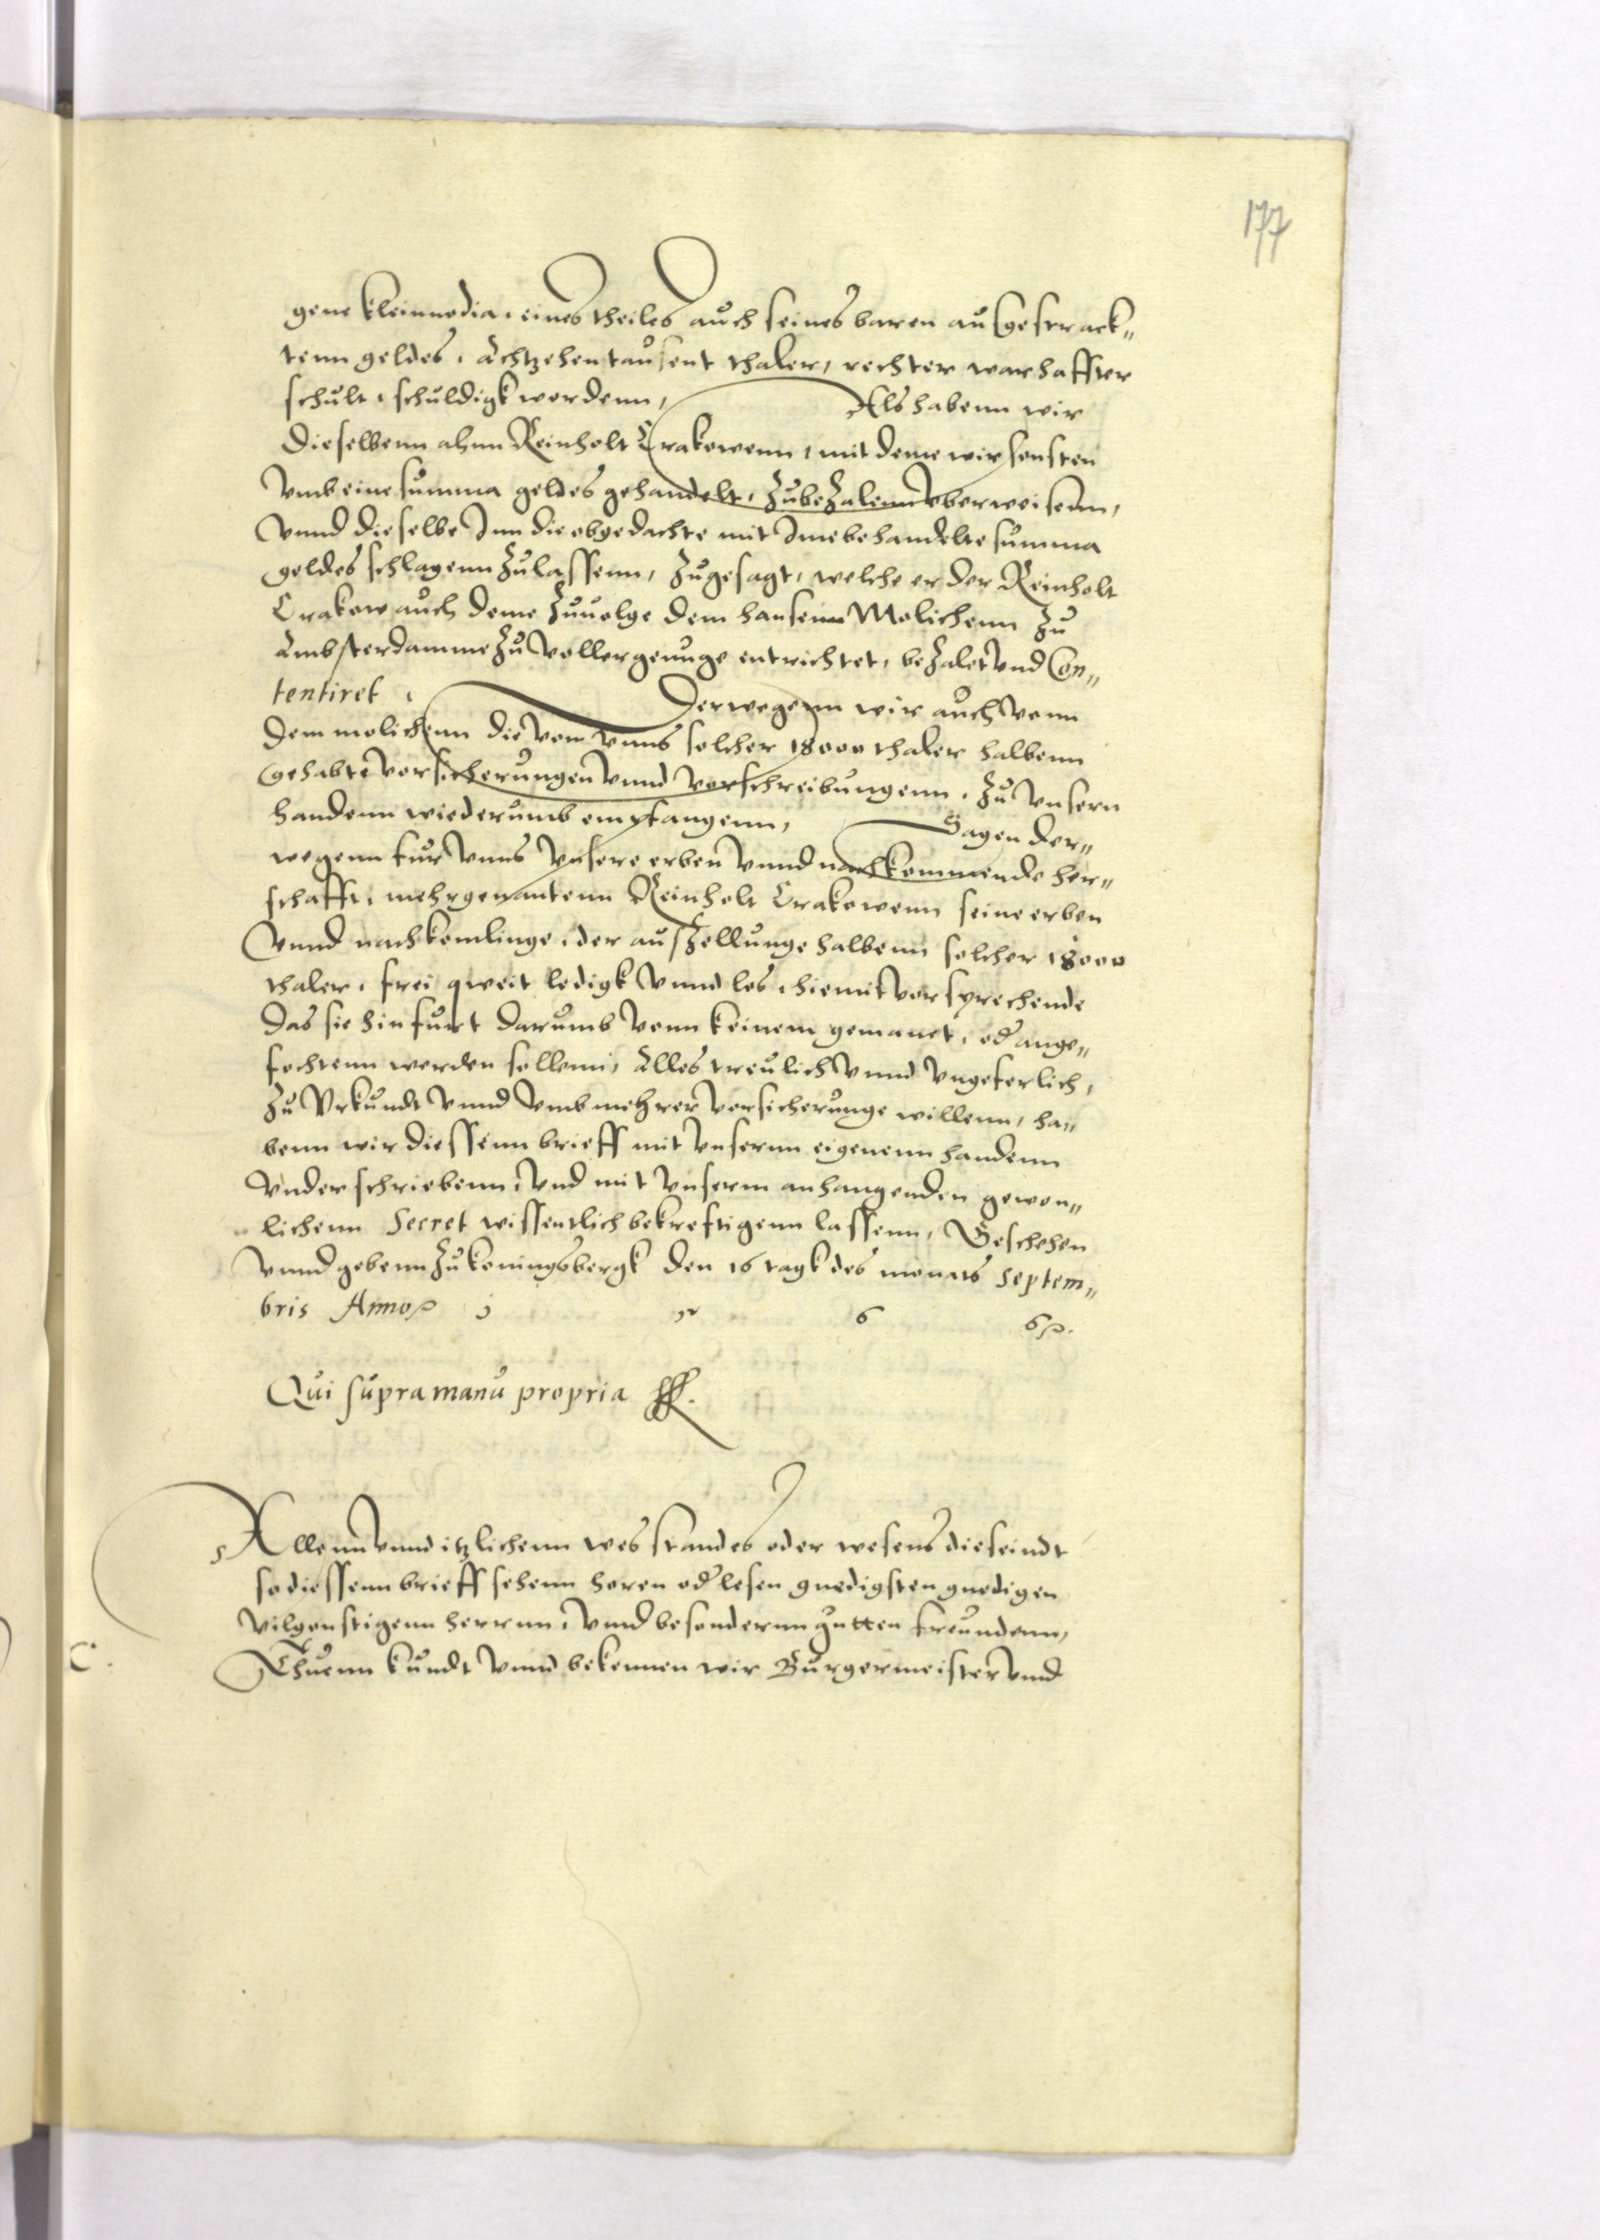 177
gene kleinnodia, eines theiles auch seines baren ausgestrack„
tenn geldes, Achtzehentausent thaler, rechter warhaffter
schult, schuldigk wordenn, Als habenn wir
dieselbenn ahnn Reinholt Crakowenn, mit deme wir sonsten
vmb eine summa geldes gehandelt, zubezalenn vberweisenn,
vnnd dieselbe Inn die obgedachte mit Ime behandelte summa
geldes schlagenn zulassenn, zugesagt, welche er der Reinholt
Crakow auch deme zuuolge dem hansenn Molichenn zu
Ambsterdamme zu voller genuge entrichtet, bezalet vnd Con„
tentiret, Derwegenn wir auch vonn
dem molichenn die vom vnns solcher 18000 thaler halbenn
gehabte vorsicherungen vnnd vorschreibungenn, zu vnsern
handenn wiederumb empfangenn, Sagen der„
wegenn fur vnns vnsere erben vnnd nachkommende her„
schafft, mehrgenantenn Reinholt Crakowenn seine erben
vnnd nachkomlinge, der auszellunge halbenn solcher 18000
thaler, frei qweit ledigk vnnd los, hiemit vorsprechende
das sie hinfurt darumb vonn keinem gemanet, od ange„
fochtenn werden sollenn, Alles treulich vnnd vngeferlich,
zu Vrkundt vnnd vmb mehrer vorsicherunge willenn, ha„
benn wir diessenn brieff mit vnsernn eigenenn handenn
vnderschriebenn, vnd mit vnserm anhangenden gewon„
lichenn Secret wissentlich bekreftigenn lassenn, Geschehen
vnnd gebenn zu koningsbergk den 16 tagk des monats Septem„
bris Anno 1 5 6 6.
Qui supra manu propria
Allenn vnnd itzlichenn wes standes oder wesens die seindt
so diessenn brieff sehenn horen od lesen gnedigsten gnedigen
vilgonstigenn herrnn, vnnd besondernn gutten freundenn,
C. Thuenn kundt vnnd bekennen wir Burgermeister vnnd